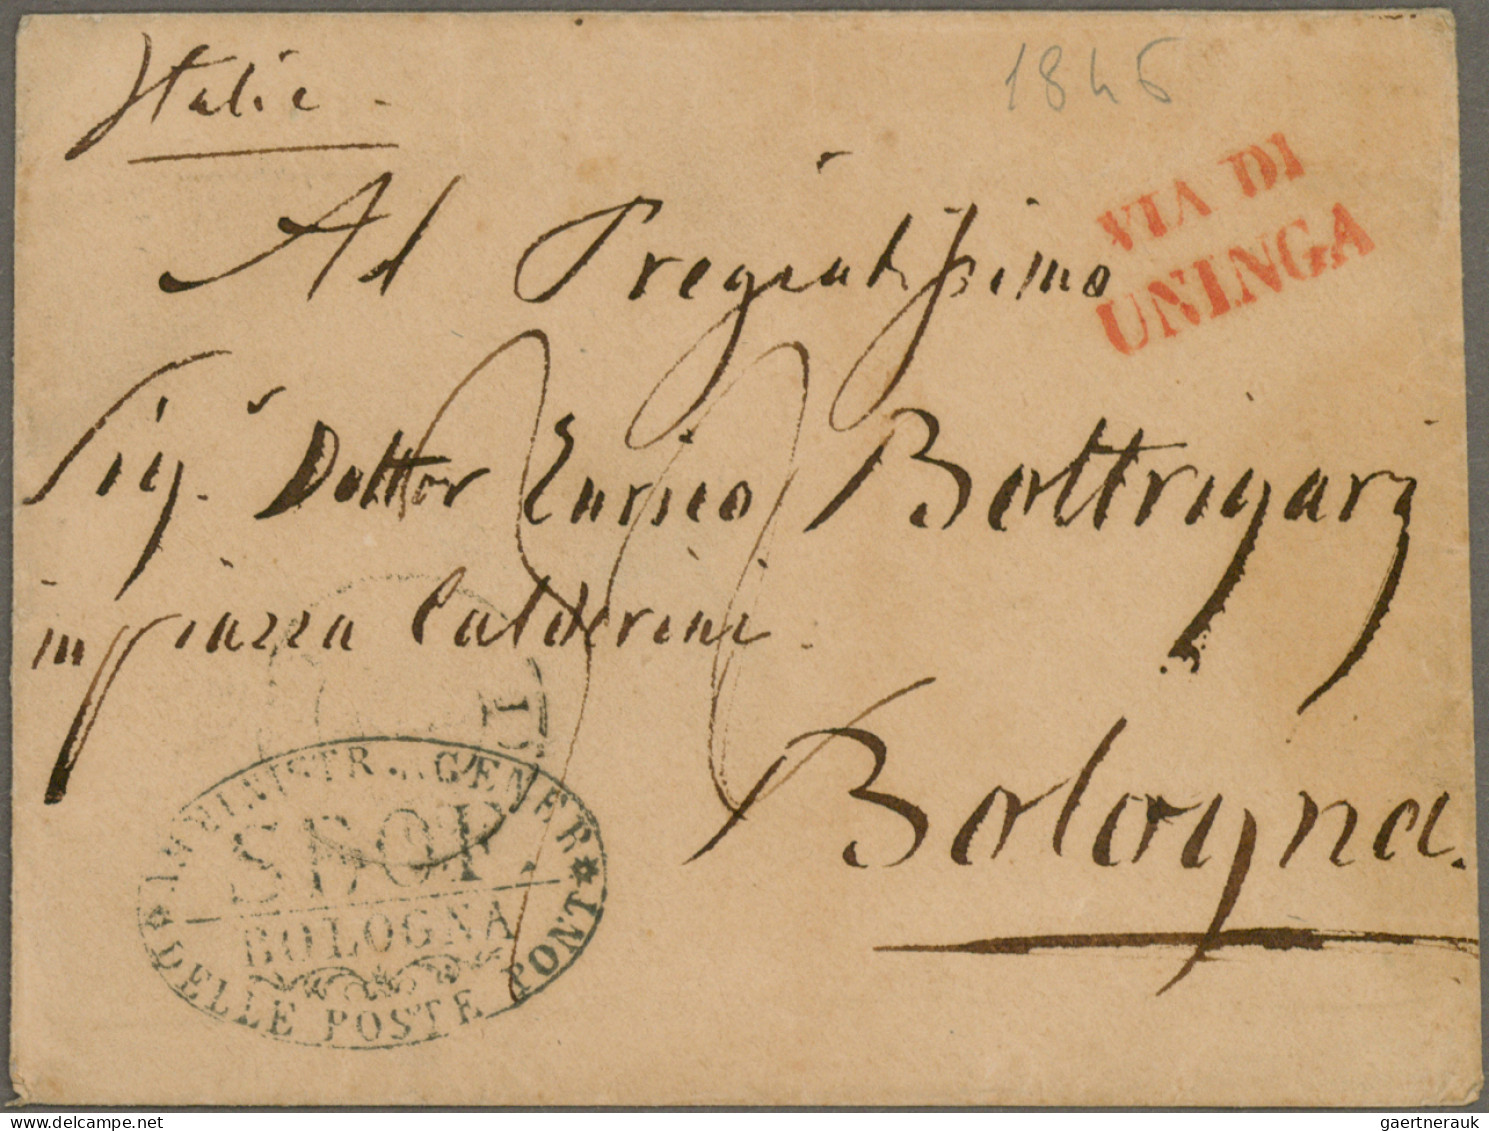 Italie
1846
VIA DI
UNINGA
Al Pregiatissimo
Sig. Dottor Enrico Bottrigari
in piazza Calderini.
Bologna.
AMMINISTR. GENER
BOLOGNA
DELLE POSTE PONT
www.delcampe.net
gaertnerauk